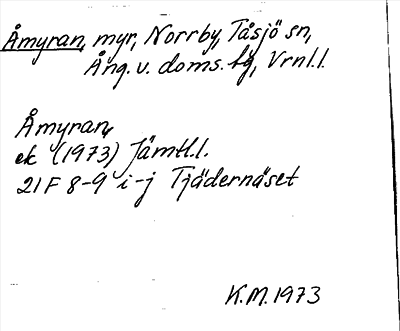 Åmyran, myr, Norrby, Tåsjö sn,
Ång. v. doms. bg, Vrnl.l.
Åmyran,
ek (1973) Jämtl.l.
21F 8-9 i-j Tjädernäset
K.M. 1973